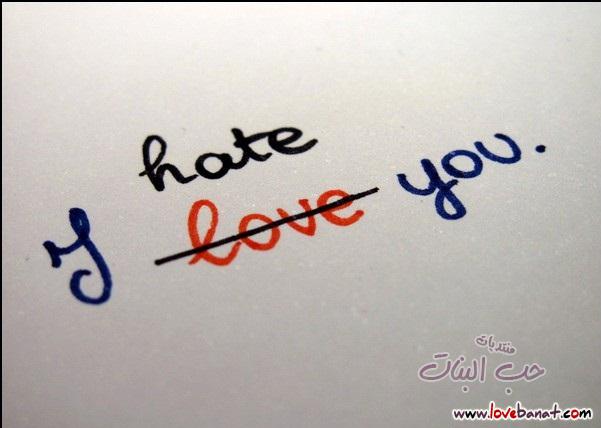 hate
I love you.
منتديات
حب البنات
www.lovebanat.com